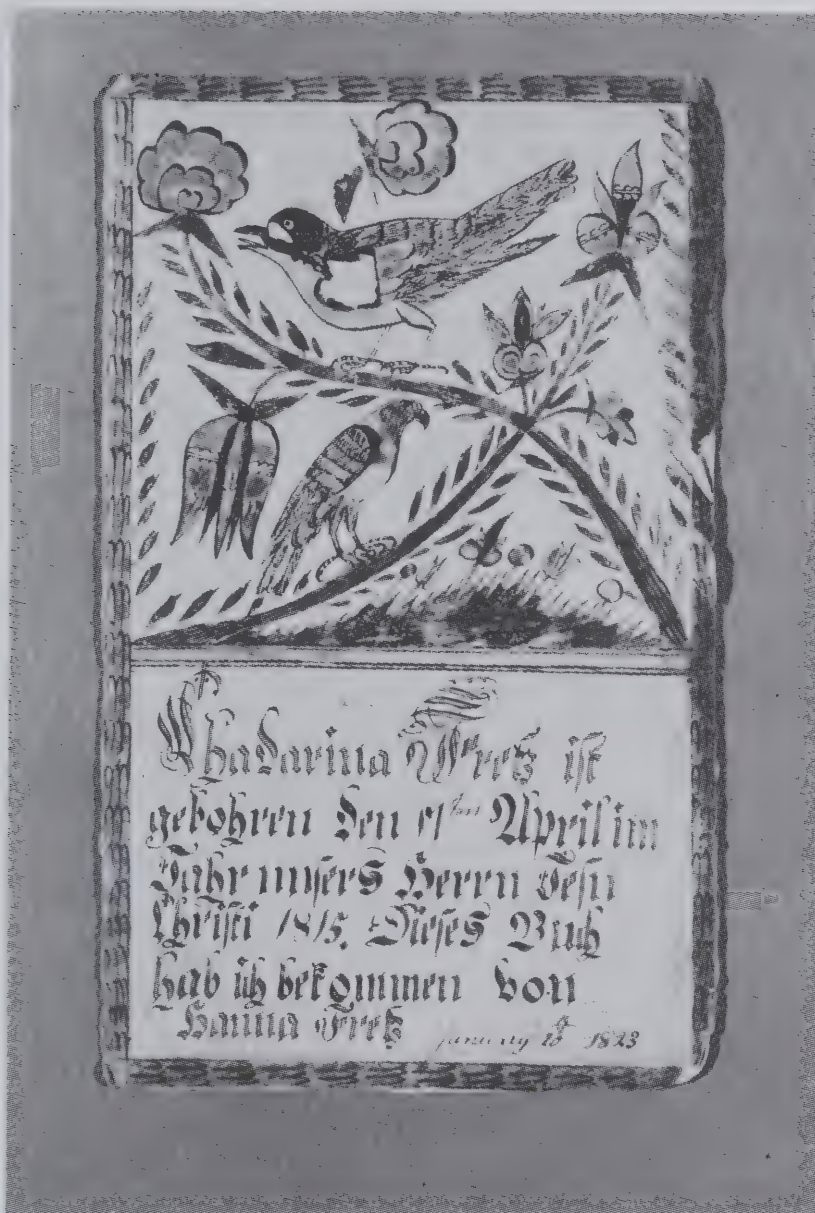 Chadarina Fretz ist
gebohren den April im
Jahr unsers Herrn Jesu
Christi 1815. Dieses Buch
hab ich bekommen von
Hanna Fretz january 1823